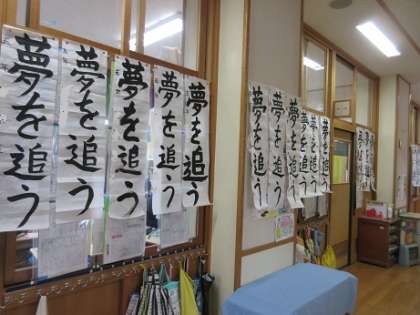 夢を追う
夢を追う
夢を追う
夢を追う
夢を追う
夢を追う
夢を追う
夢を追う
夢を追う
夢を追う
夢を追う